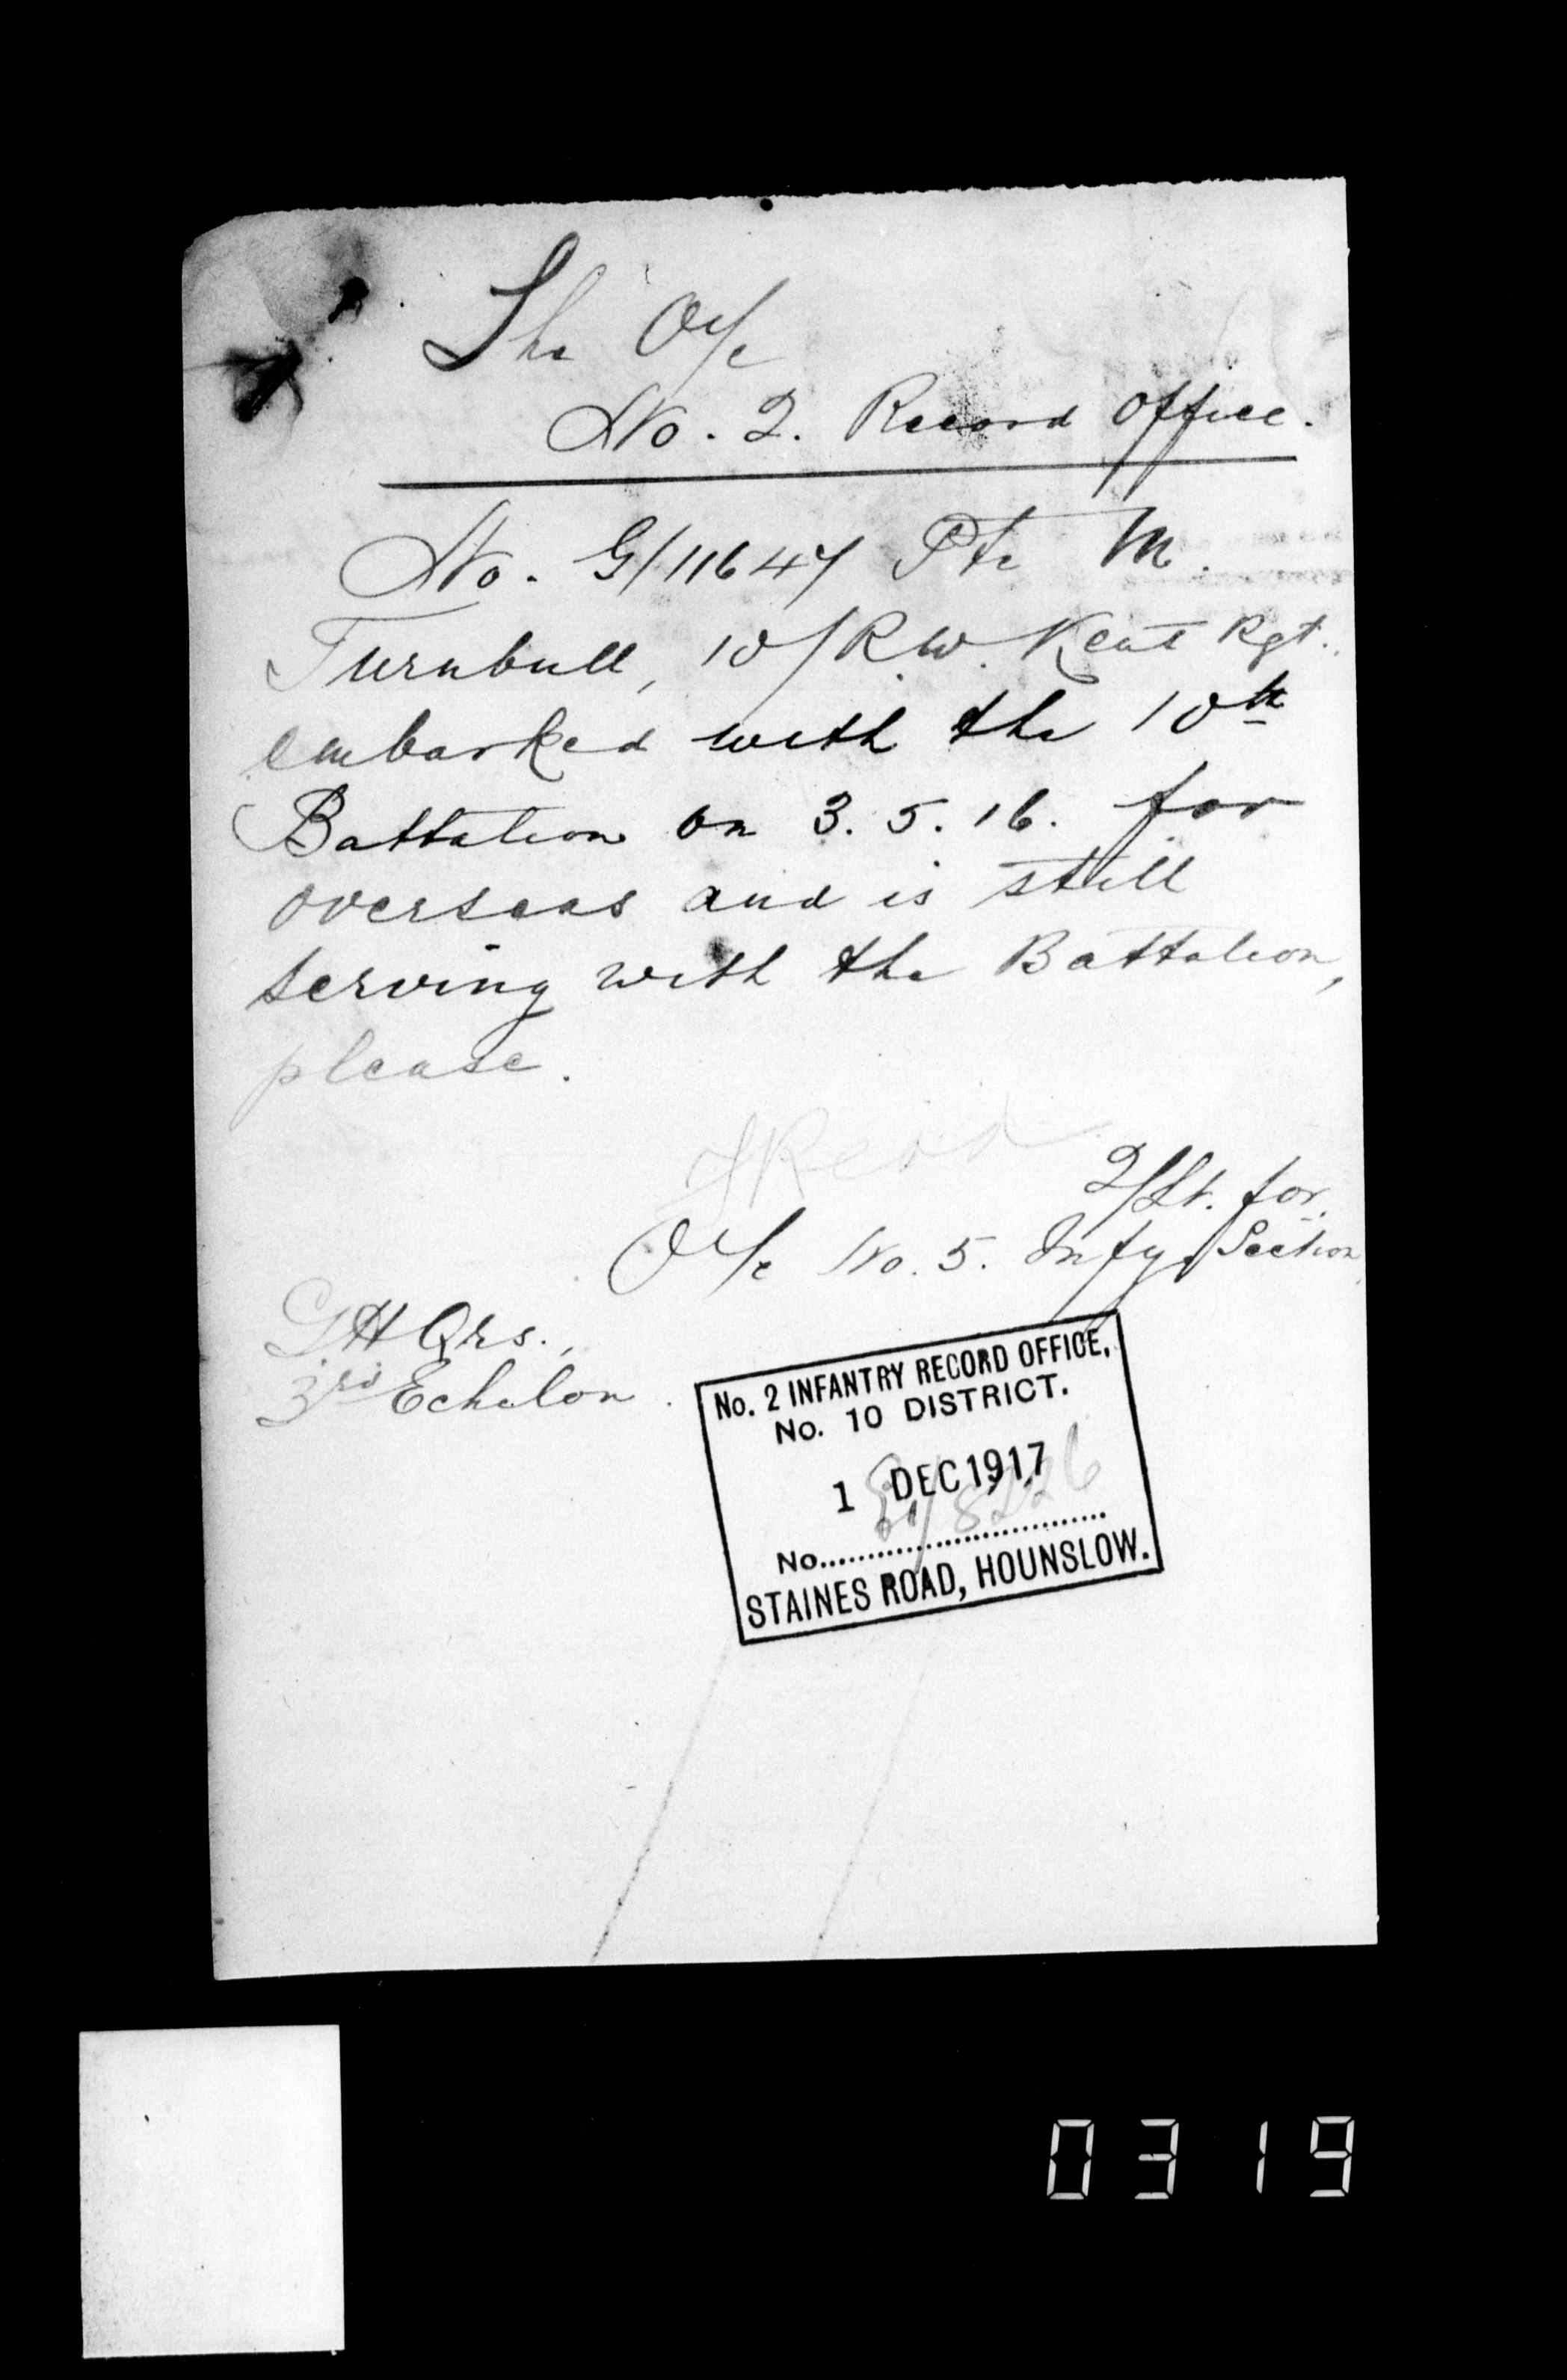 The O i/c
No. 2. Record Office.
No. G/11647 Pte M.
Turnbull, 10/R.W. Kent Rgt.
embarked with the 10th
Battalion on 3.5.16. for
overseas and is still
serving with the Battalion,
please.
2/Lt. for
O i/c No. 5. Infy. Section
GHQrs.,
3rd Echelon.
No. 2 INFANTRY RECORD OFFICE,
No. 10 DISTRICT.
1 DEC 1917
No.
STAINES ROAD, HOUNSLOW.
0319